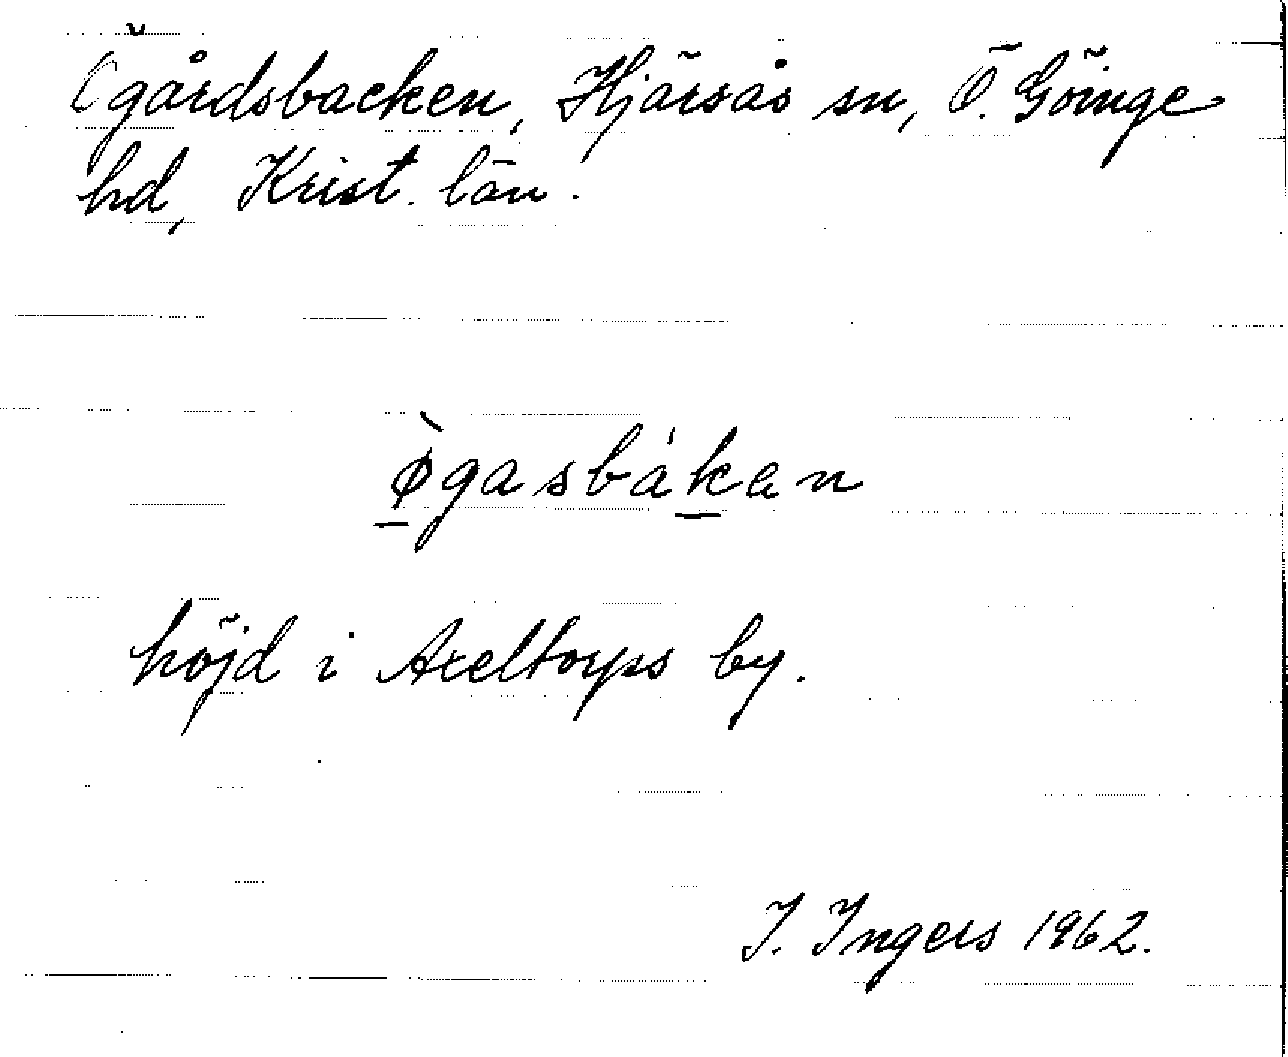 Ögårdsbacken, Hjärsås sn, Ö. Göinge
hd, Krist. län.
ø̀gasbákan
höjd i Axeltorps by.
I. Ingers 1962.